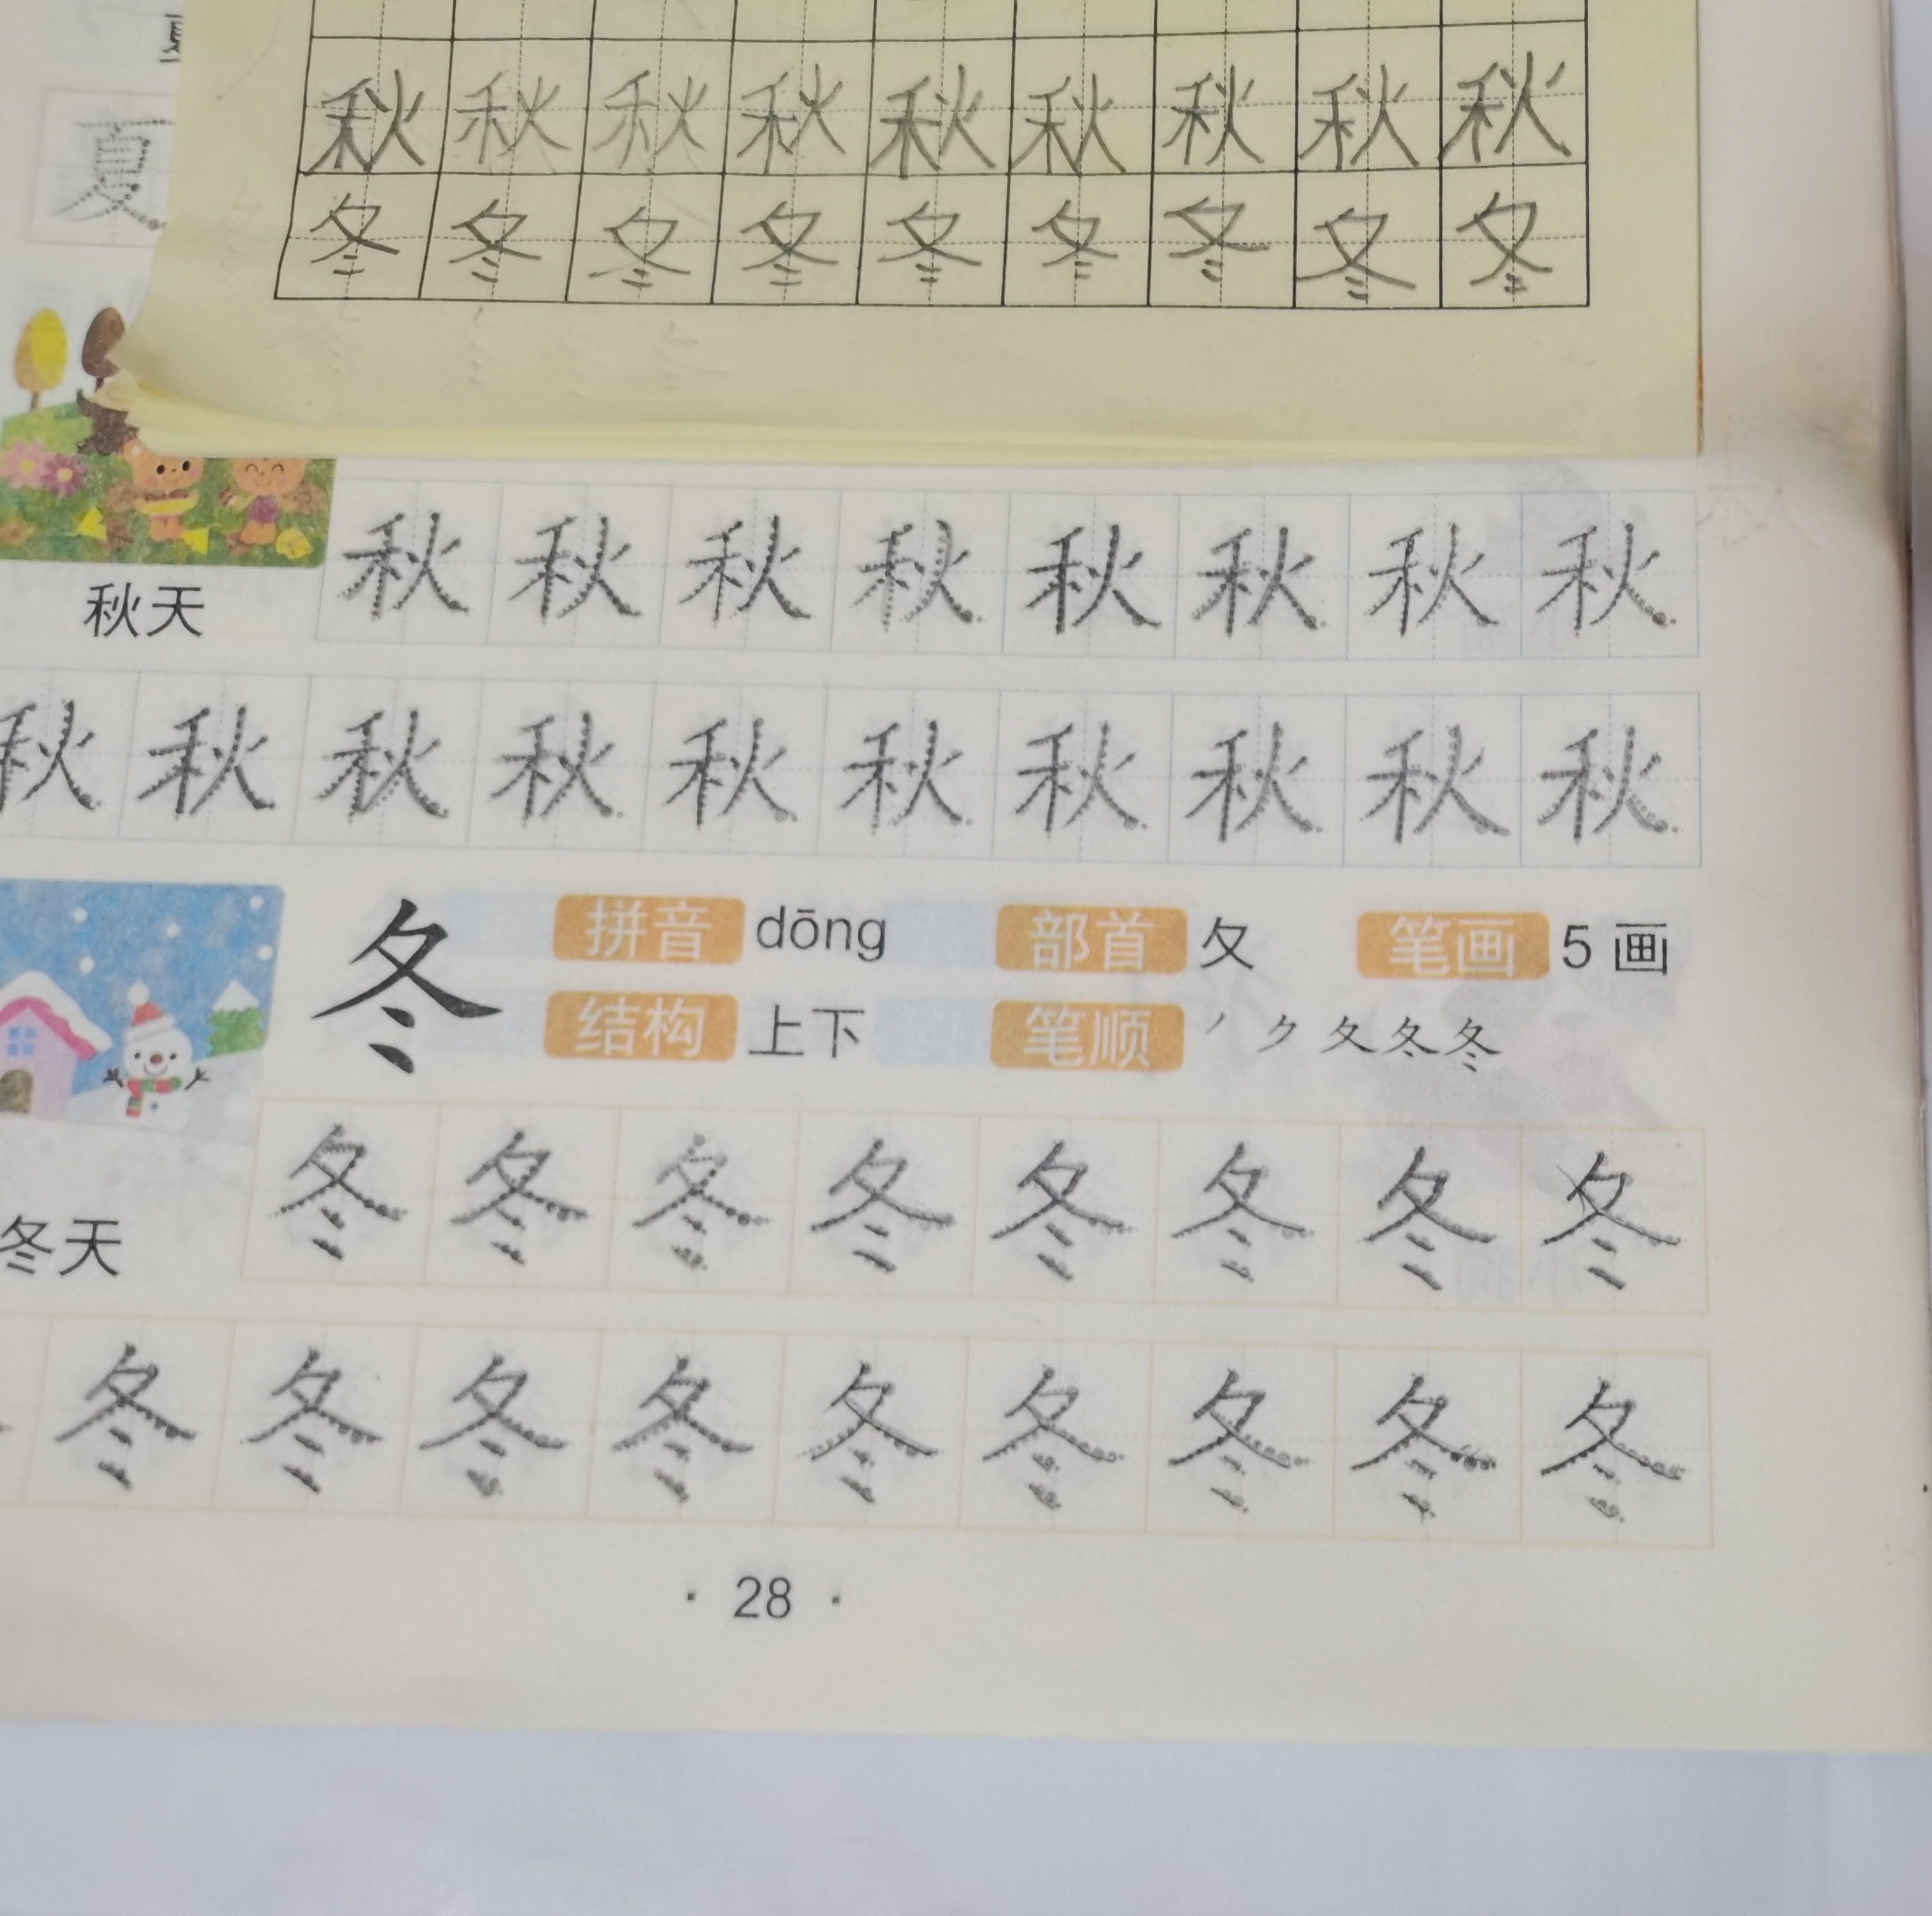 秋秋秋秋秋秋秋秋秋
冬冬冬冬冬冬冬冬冬
夏
秋秋秋秋秋秋秋秋
秋天
秋秋秋秋秋秋秋秋秋秋
冬 拼音 dōng 部首 夂 笔画 5 画
结构 上下 笔顺 丿 ク 夂 冬 冬
冬冬冬冬冬冬冬冬
冬天
冬冬冬冬冬冬冬冬冬
· 28 ·